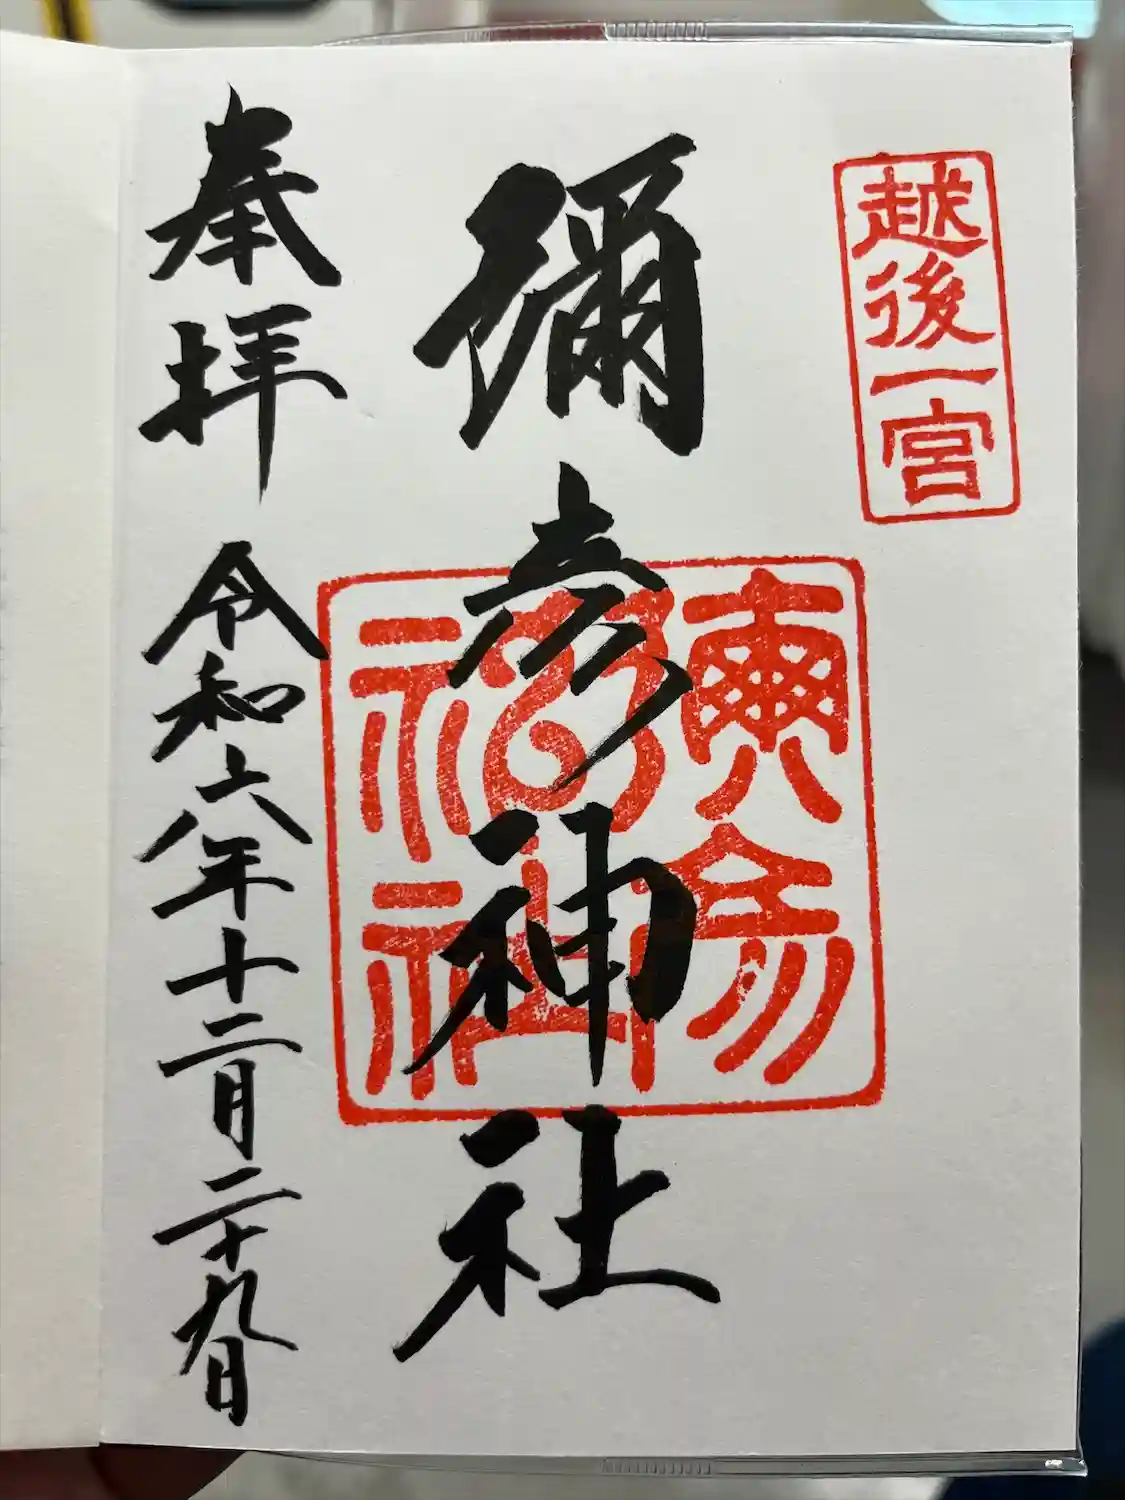 越後一宮
彌彦神社
奉拝
令和六年十二月二十九日